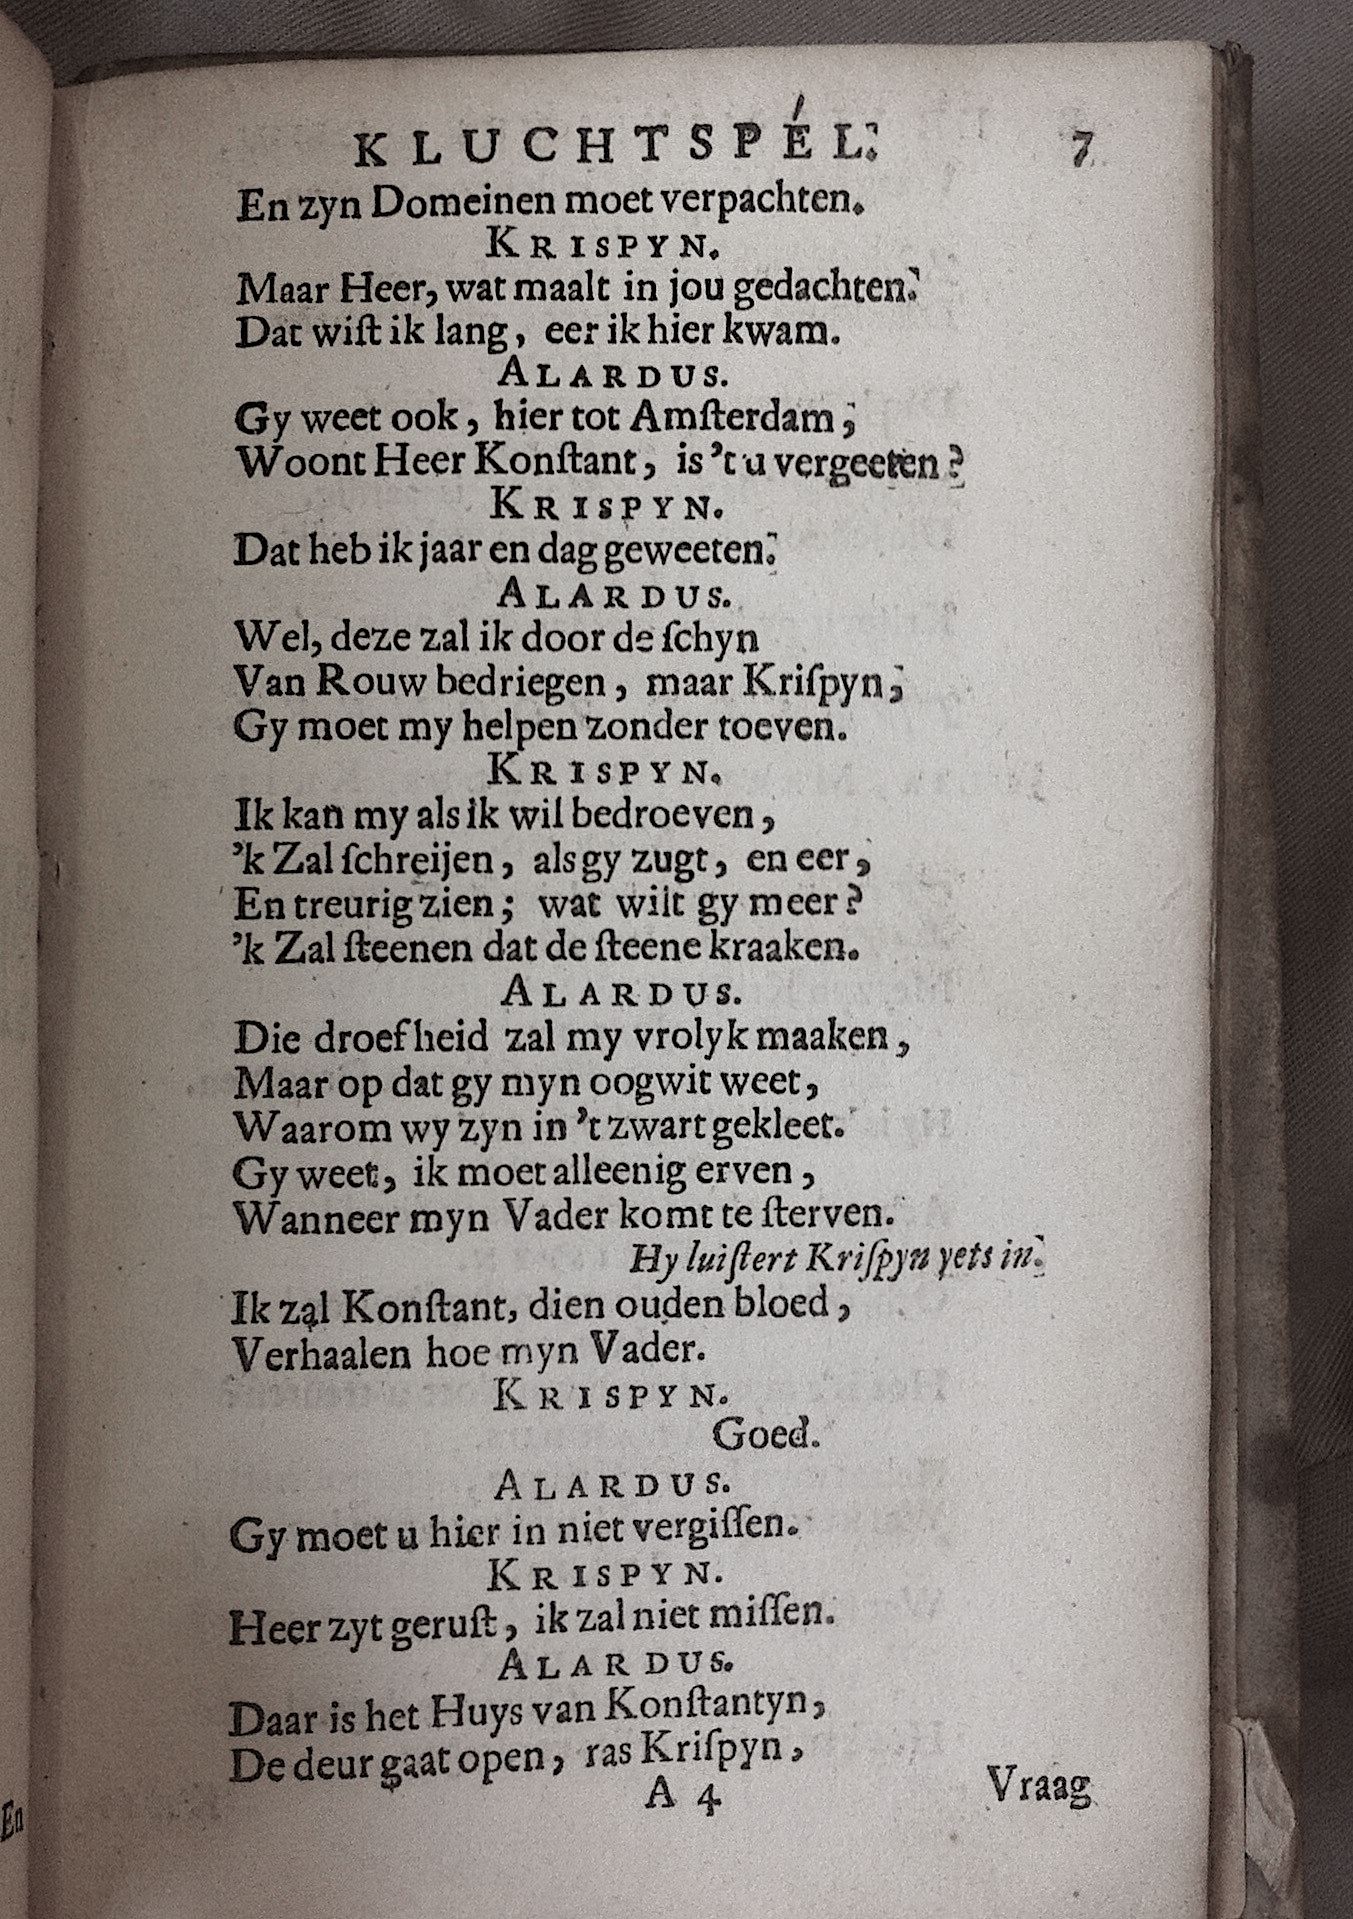 KLUCHTSPÉL. 7
En zyn Domeinen moet verpachten.
KRISPYN.
Maar Heer, wat maalt in jou gedachten.
Dat wiſt ik lang, eer ik hier kwam.
ALARDUS.
Gy weet ook, hier tot Amſterdam;
Woont Heer Konſtant, is 't u vergeeten?
KRISPYN.
Dat heb ik jaar en dag geweeten.
ALARDUS.
Wel, deze zal ik door de ſchyn
Van Rouw bedriegen, maar Kriſpyn;
Gy moet my helpen zonder toeven.
KRISPYN.
Ik kan my als ik wil bedroeven,
'k Zal ſchreijen, als gy zugt, en eer,
En treurig zien; wat wilt gy meer?
'k Zal ſteenen dat de ſteene kraaken.
ALARDUS.
Die droefheid zal my vrolyk maaken,
Maar op dat gy myn oogwit weet,
Waarom wy zyn in 't zwart gekleet.
Gy weet, ik moet alleenig erven,
Wanneer myn Vader komt te ſterven.
Hy luiſtert Kriſpyn yets in.
Ik zal Konſtant, dien ouden bloed,
Verhaalen hoe myn Vader.
KRISPYN.
Goed.
ALARDUS.
Gy moet u hier in niet vergiſſen.
KRISPYN.
Heer zyt geruſt, ik zal niet miſſen.
ALARDUS.
Daar is het Huys van Konſtantyn,
De deur gaat open, ras Kriſpyn,
A 4 Vraag
En